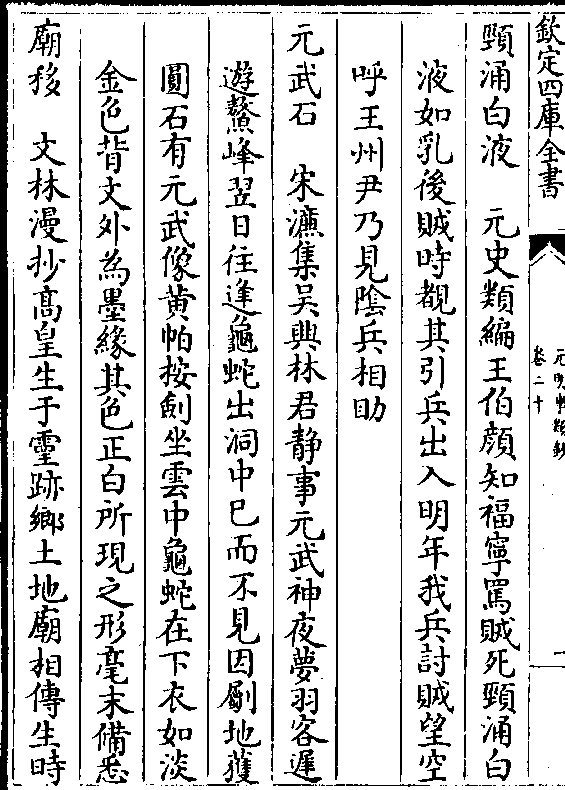 欽定四庫全書
元明事類鈔
卷二十
頸涌白液　元史類編王伯顔知福寧罵賊死頸涌白
液如乳後賊時覩其引兵出入明年我兵討賊望空
呼王州尹乃見隂兵相助
元武石　宋濓集吴興林君静事元武神夜夢羽客遲
遊鰲峰翌日往逢龜蛇出洞中已而不見因劚地獲
圓石有元武像黄帕按劍坐雲中龜蛇在下衣如淡
金色背文外為墨緣其色正白所現之形毫末備悉
廟移　文林漫抄高皇生于靈跡鄉土地廟相傳生時